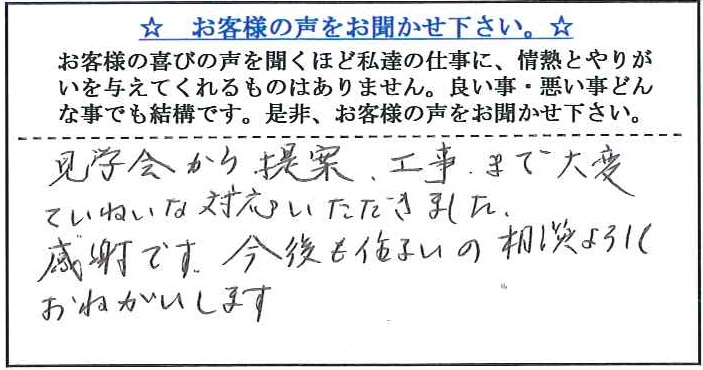 ☆ お客様の声をお聞かせ下さい。☆
お客様の喜びの声を聞くほど私達の仕事に、情熱とやりが
いを与えてくれるものはありません。良い事・悪い事どん
な事でも結構です。是非、お客様の声をお聞かせ下さい。
見学会から、提案、工事、まで大変
ていねいな対応いただきました、
感謝です。今後も住まいの相談よろしく
おねがいします